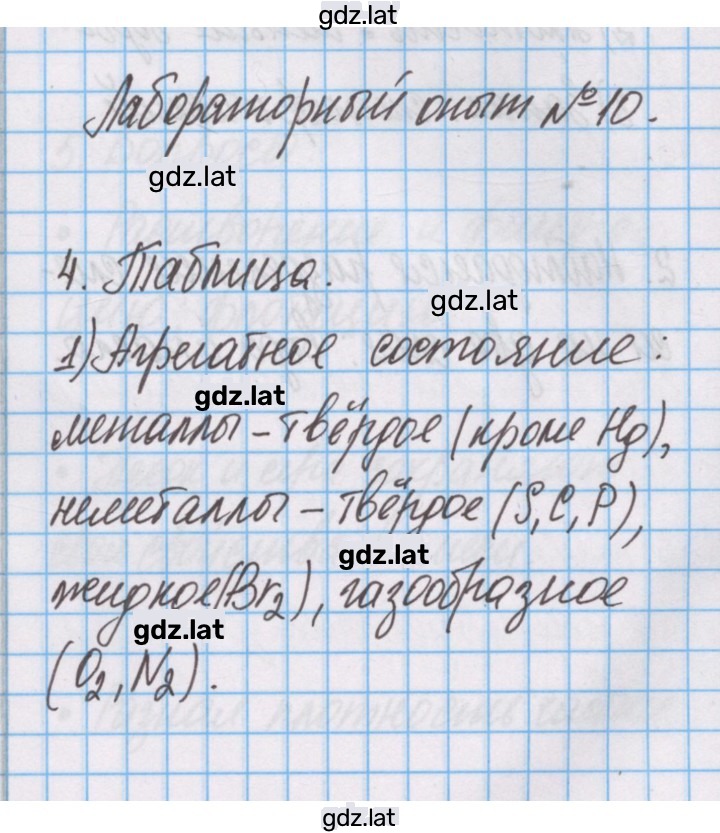 gdz.lat
Лабораторный опыт №10.
gdz.lat
4. Таблица.
gdz.lat
1) Агрегатное состояние:
gdz.lat
металлы – твёрдое (кроме Hg),
неметаллы – твёрдое (S, C, P),
gdz.lat
жидкое (Br₂), газообразное
gdz.lat
(O₂, N₂).
gdz.lat